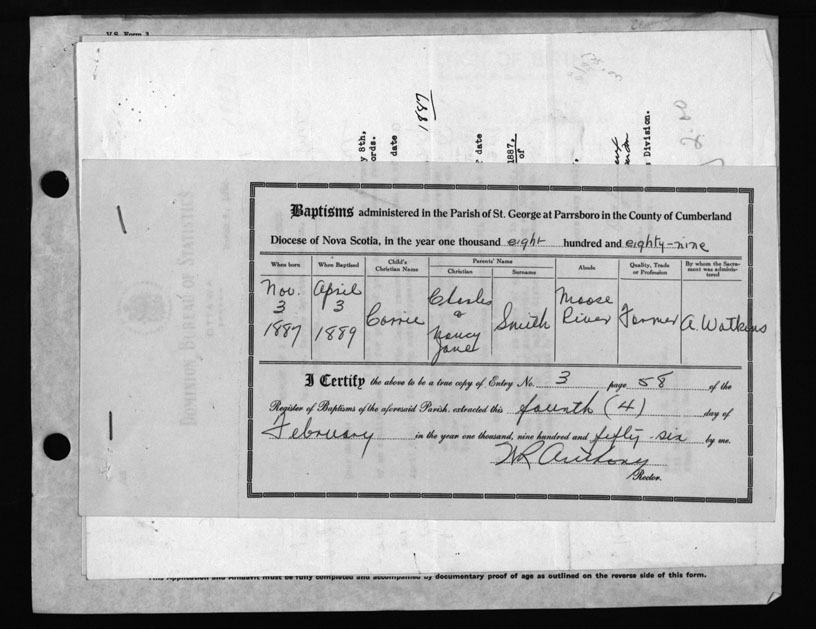 V.S. Form 3
1887
y 8th,
ords.
date
date
1887.
of
Division.
2.00
DOMINION BUREAU OF STATISTICS
OTTAWA
Baptisms administered in the Parish of St. George at Parrsboro in the County of Cumberland
Diocese of Nova Scotia, in the year one thousand eight hundred and eighty-nine
When born When Baptised Child's Christian Name Parents' Name Christian Surname Abode Quality, Trade or Profession By whom the Sacrament was administered
Nov. 3 1887 April 3 1889 Corrie Charles & Nancy Jane Smith Moose River Farmer A. Watkins
I Certify the above to be a true copy of Entry No. 3 page 58 of the
Register of Baptisms of the aforesaid Parish, extracted this fourth (4) day of
February in the year one thousand, nine hundred and fifty-six by me.
WR Anthony
Rector.
This Application and Affidavit must be fully completed and accompanied by documentary proof of age as outlined on the reverse side of this form.